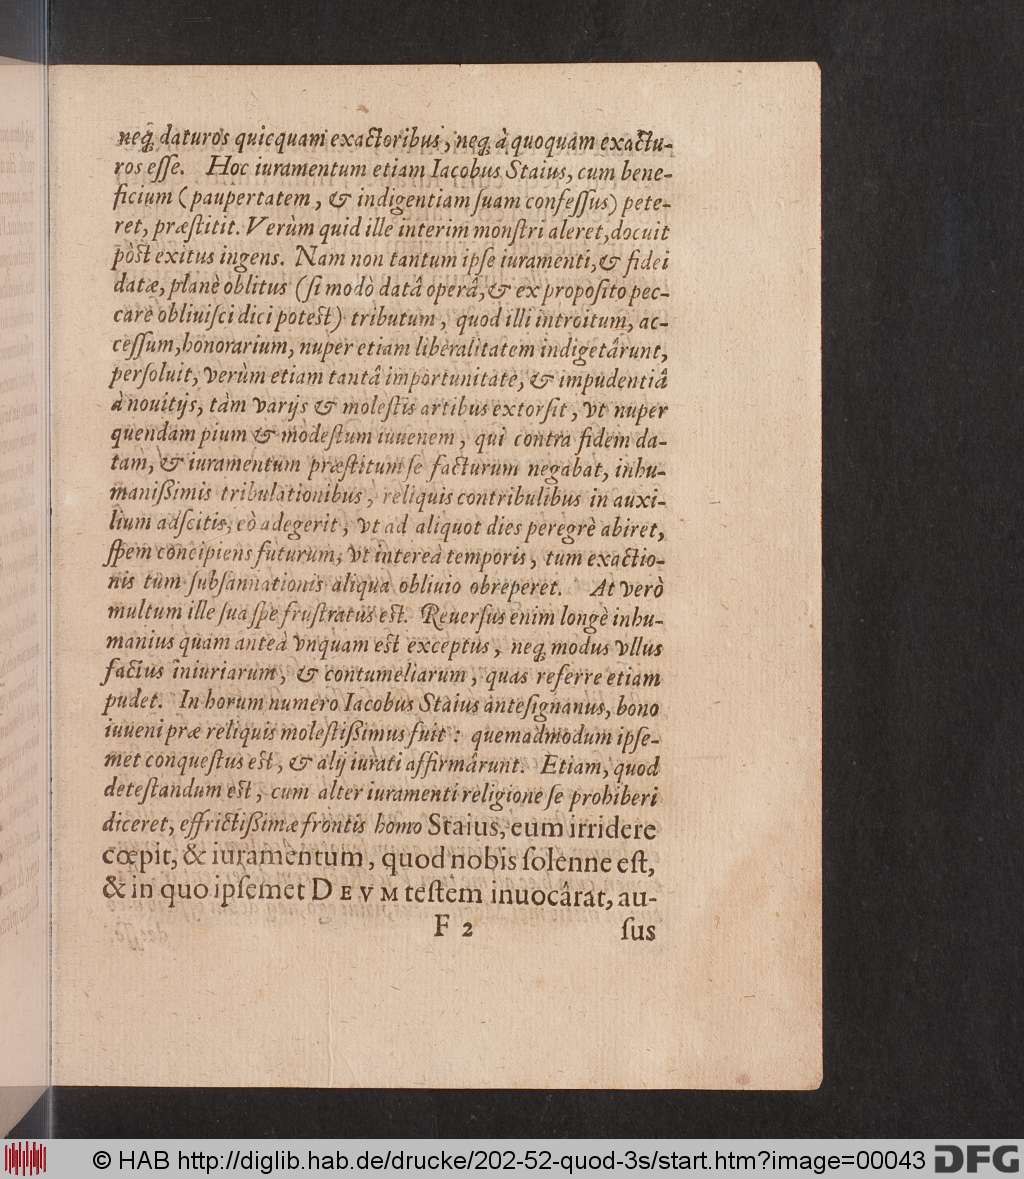 neq́; daturos quicquam exactoribus, neq; à quoquam exactu-
ros esse. Hoc iuramentum etiam Iacobus Staius, cum bene-
ficium (paupertatem, & indigentiam suam confessus) pete-
ret, præstitit. Verùm quid ille interim monstri aleret, docuit
pòst exitus ingens. Nam non tantum ipse iuramenti, & fidei
datæ, planè oblitus (si modò datâ operâ, & ex proposito pec-
care obliuisci dici potest) tributum, quod illi introitum, ac-
cessum, honorarium, nuper etiam liberalitatem indigetârunt,
persoluit, verùm etiam tantâ importunitate, & impudentiâ
à nouitijs, tàm varijs & molestis artibus extorsit, vt nuper
quendam pium & modestum iuuenem, qui contra fidem da-
tam, & iuramentum præstitum se facturum negabat, inhu-
manißimis tribulationibus, reliquis contribulibus in auxi-
lium adscitis, eò adegerit, vt ad aliquot dies peregrè abiret,
spem concipiens futurum, vt intereà temporis, tum exactio-
nis tum subsannationis aliqua obliuio obreperet. At verò
multum ille sua spe frustratus est. Reuersus enim longè inhu-
manius quàm anteà vnquam est exceptus, neq; modus vllus
factus iniuriarum, & contumeliarum, quas referre etiam
pudet. In horum numero Iacobus Staius antesignanus, bono
iuueni præ reliquis molestißimus fuit: quemadmodum ipse-
met conquestus est, & alij iurati affirmârunt. Etiam, quod
detestandum est, cum alter iuramenti religione se prohiberi
diceret, effrictißimæ frontis homo Staius, eum irridere
cœpit, & iuramentum, quod nobis solenne est,
& in quo ipsemet DEVM testem inuocârat, au-
F 2 sus
© HAB http://diglib.hab.de/drucke/202-52-quod-3s/start.htm?image=00043 DFG